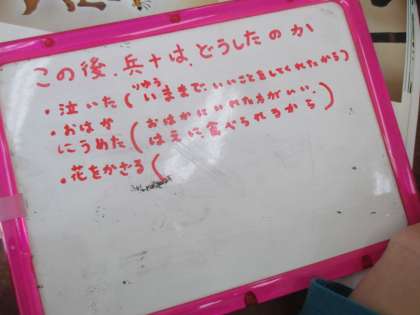 この後、兵十は、どうしたのか
・泣いた(いままで、いいことをしてくれたから)
りゆう
・おはか
にうめた
(おはかにいれた方がいい。
はえに食べられるから)
・花をかざる(